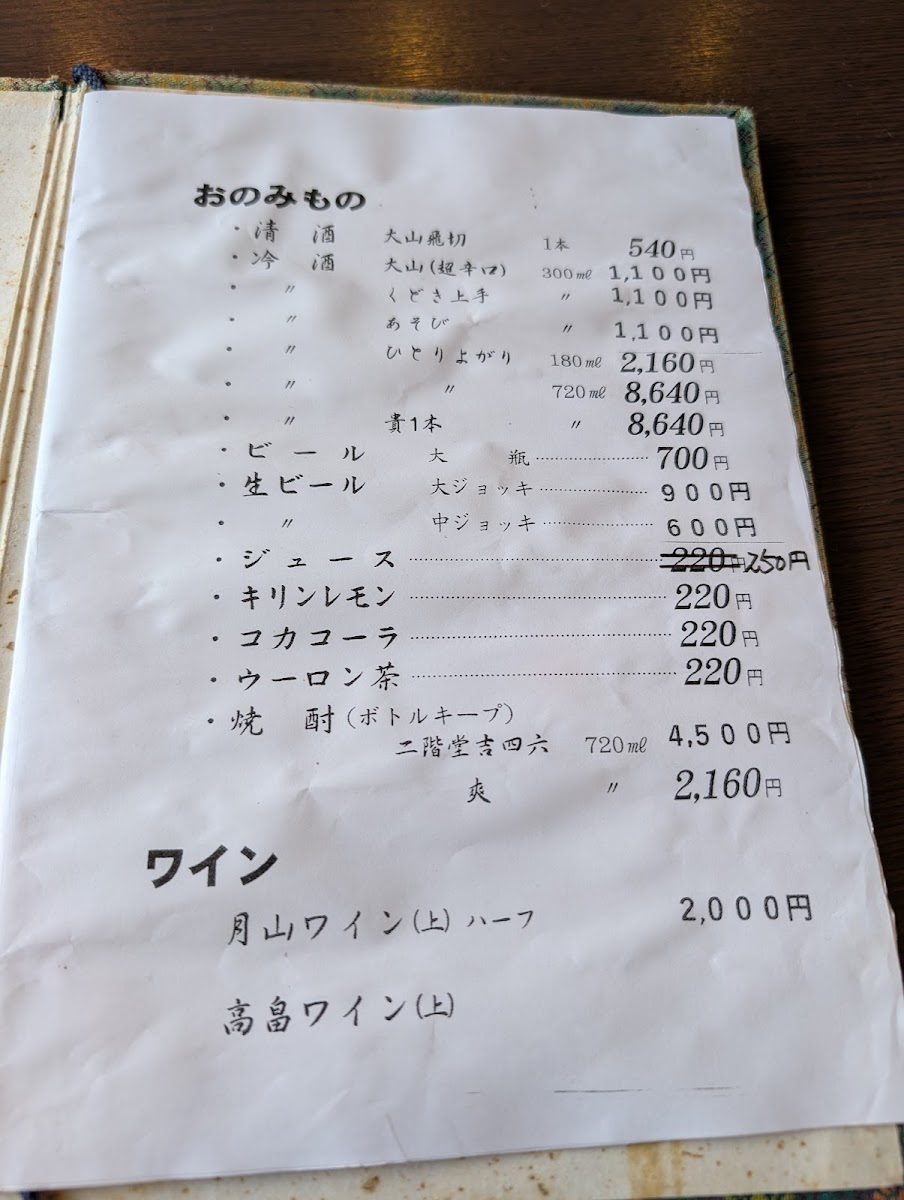 おのみもの
・清　酒　大山飛切　1本　540円
・冷　酒　大山(超辛口)　300㎖　1,100円
・　〃　くどき上手　〃　1,100円
・　〃　あそび　〃　1,100円
・　〃　ひとりよがり　180㎖　2,160円
・　〃　〃　720㎖　8,640円
・　〃　貴1本　〃　8,640円
・ビール　大　瓶……………700円
・生ビール　大ジョッキ……………900円
・　〃　中ジョッキ……………600円
・ジュース……………220円 250円
・キリンレモン……………220円
・コカコーラ……………220円
・ウーロン茶……………220円
・焼　酎(ボトルキープ)
二階堂吉四六　720㎖　4,500円
爽　〃　2,160円
ワイン
月山ワイン(上)ハーフ　2,000円
高畠ワイン(上)